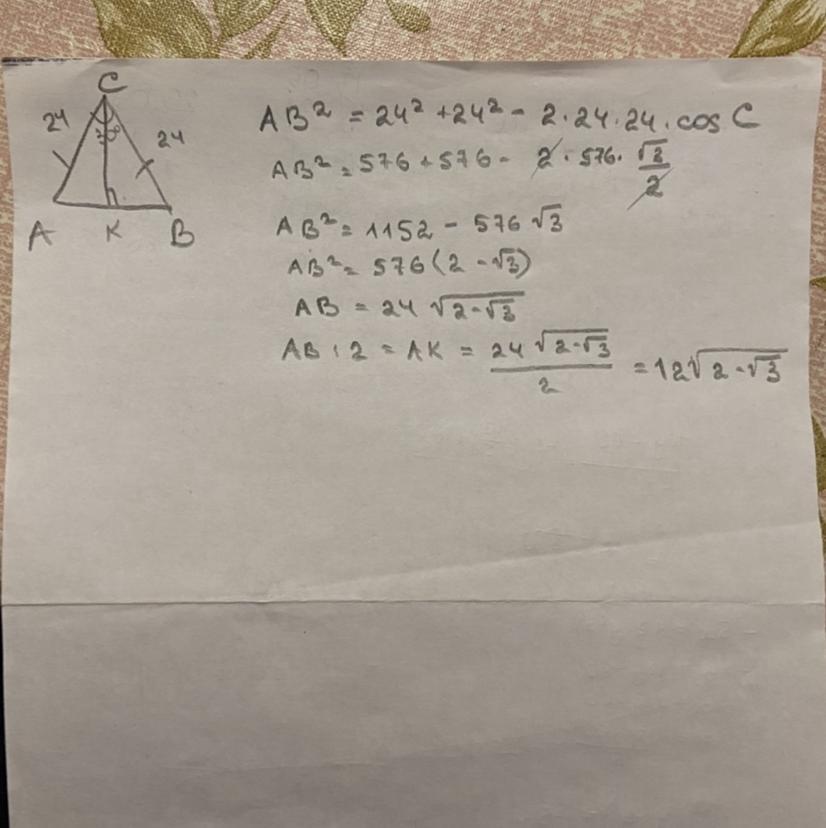 C
24
30°
24
A K B
AB² = 24² + 24² - 2·24·24·cos C
AB² = 576 + 576 - 2·576·√2/2
AB² = 1152 - 576√3
AB² = 576(2 - √3)
AB = 24√(2-√3)
AB : 2 = AK = 24√(2-√3)/2 = 12√(2-√3)